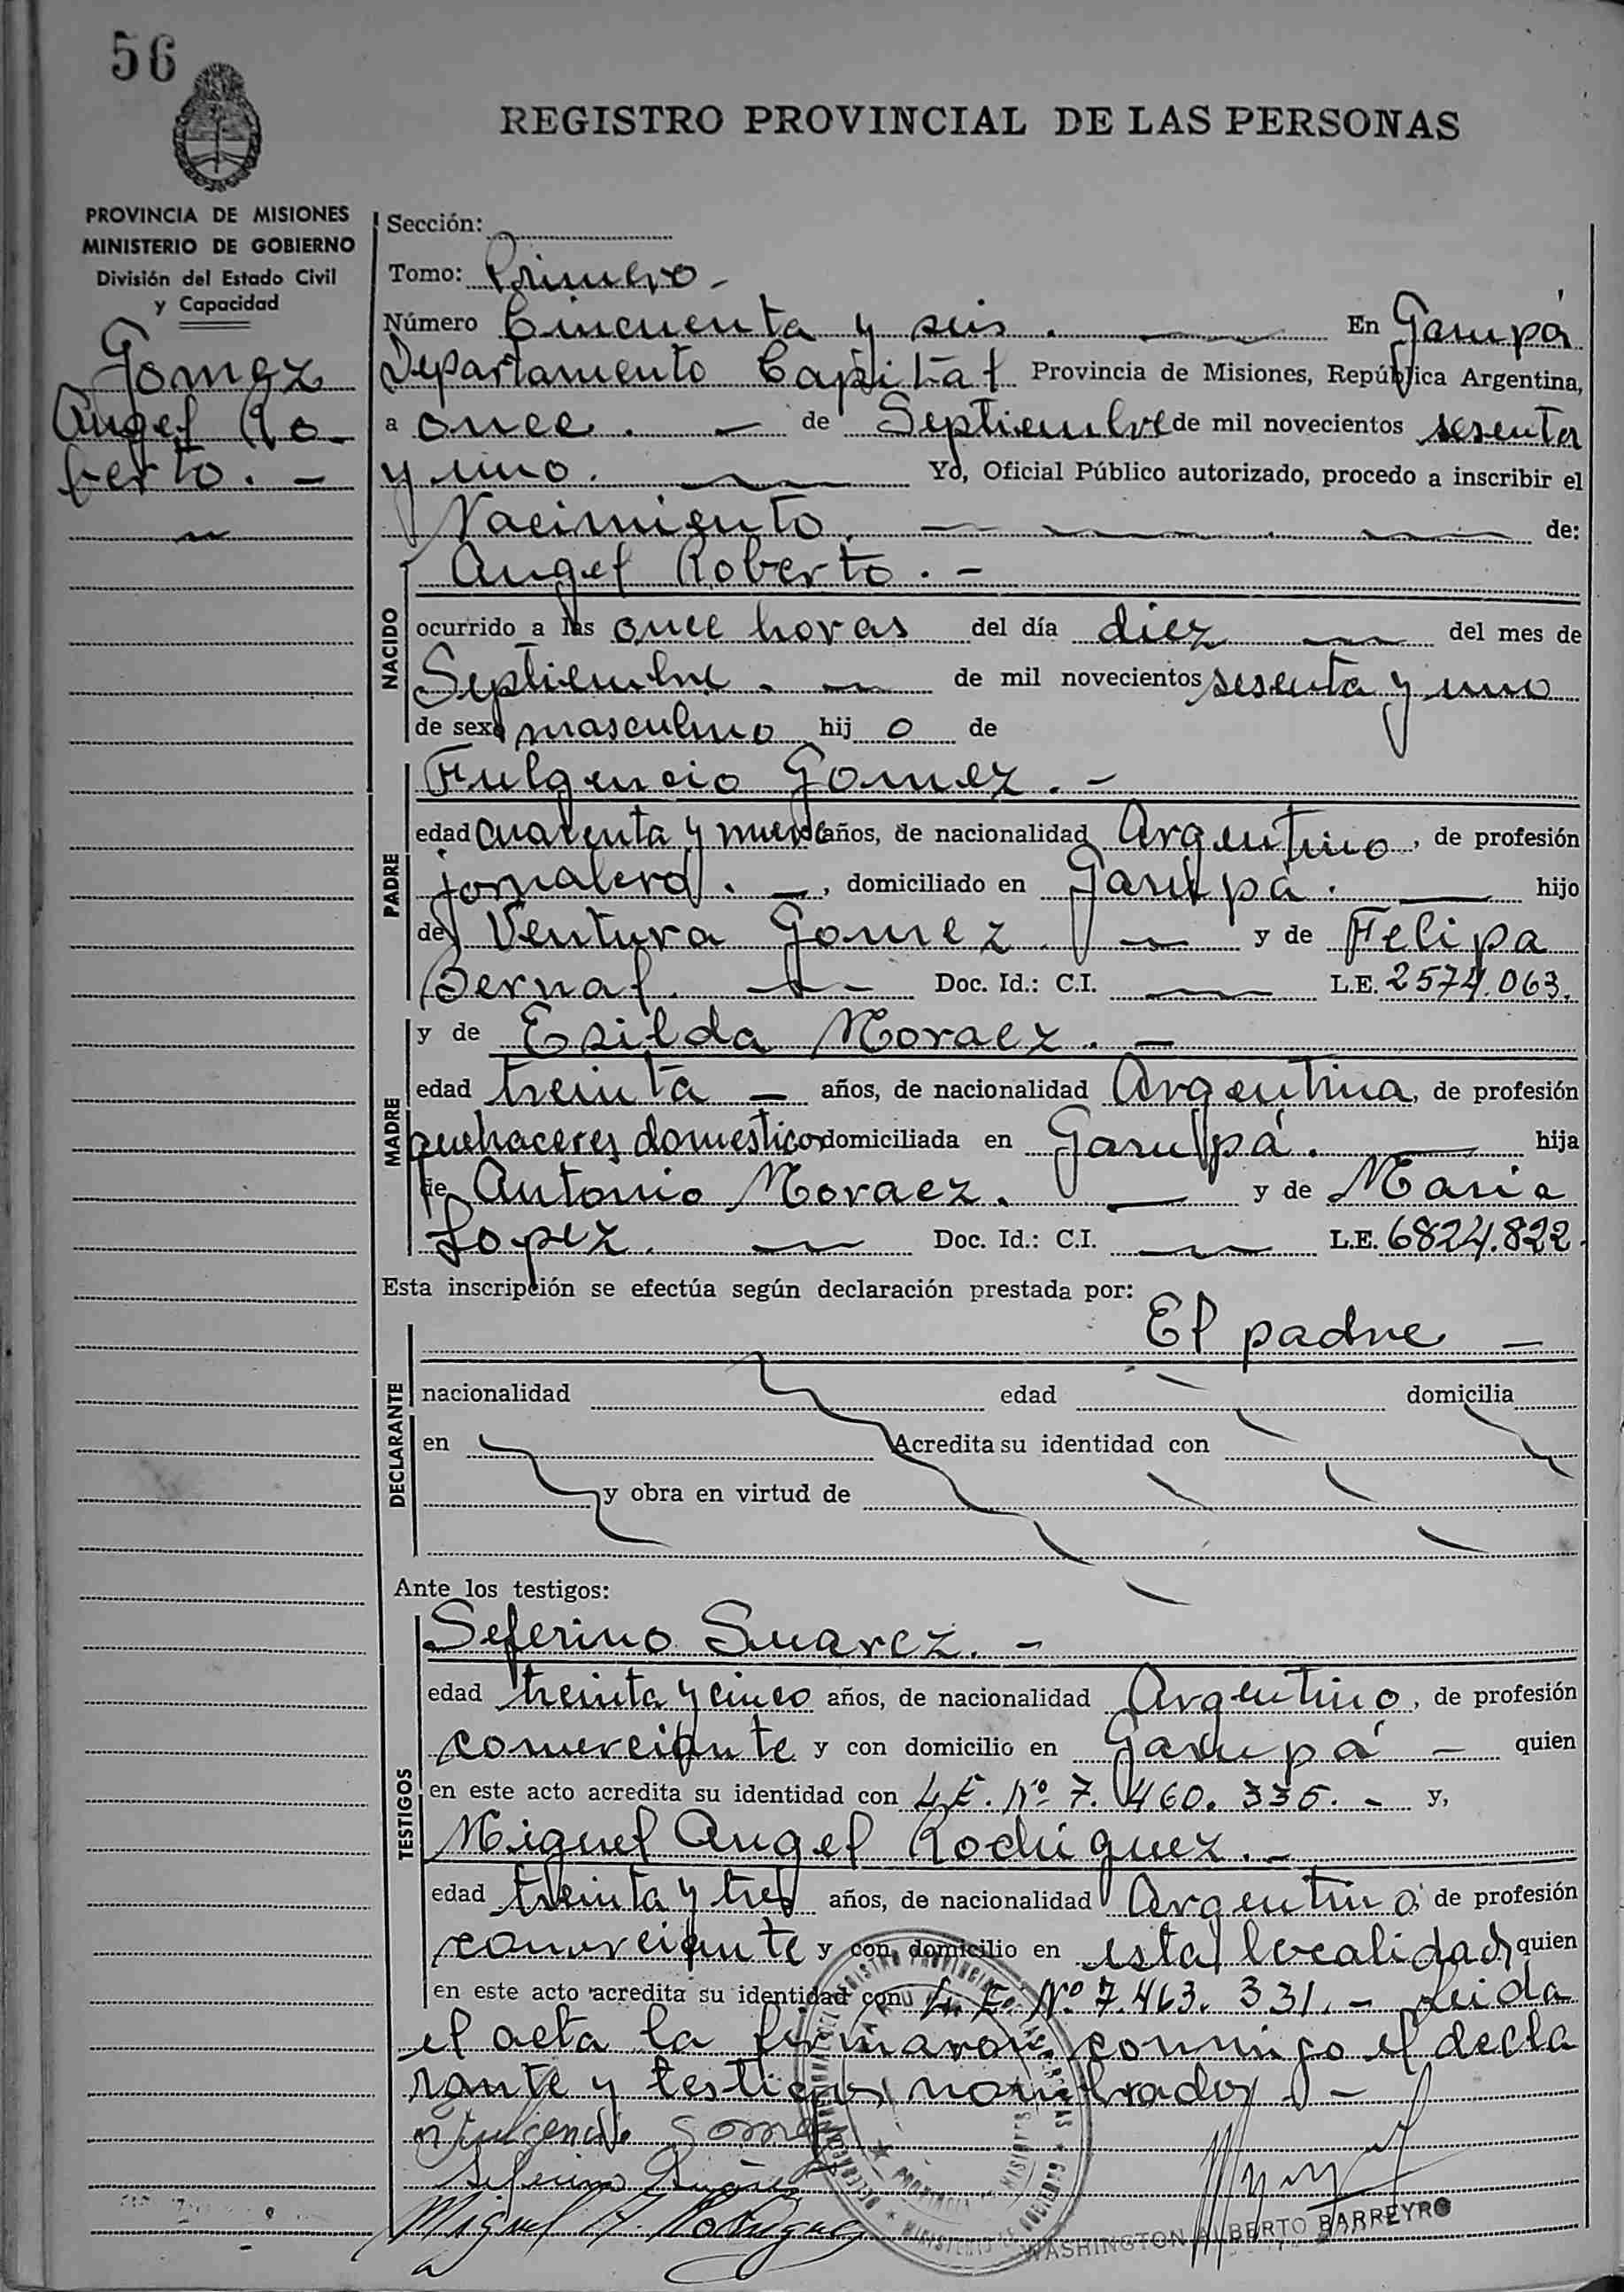 56
REGISTRO PROVINCIAL DE LAS PERSONAS
PROVINCIA DE MISIONES
MINISTERIO DE GOBIERNO
División del Estado Civil
y Capacidad
Gomez
Angel Ro-
berto. -
Sección:
Tomo: Primero -
Número Cincuenta y seis . En Garupá
Departamento Capital Provincia de Misiones, República Argentina,
a once . - de Septiembre de mil novecientos sesenta
y uno. Yo, Oficial Público autorizado, procedo a inscribir el
Nacimiento. de:
NACIDO
Angel Roberto. -
ocurrido a las once horas del día diez del mes de
Septiembre . - de mil novecientos sesenta y uno
de sexo masculino hij o de
PADRE
Fulgencio Gomez. -
edad cuarenta y nueve años, de nacionalidad Argentino, de profesión
jornalero. -, domiciliado en Garupá. hijo
de Ventura Gomez. y de Felipa
Bernal. Doc. Id.: C.I. L.E. 2574.063.
MADRE
y de Esilda Moraez. -
edad treinta - años, de nacionalidad Argentina, de profesión
quehaceres domesticos domiciliada en Garupá. hija
de Antonio Moraez. y de Maria
Lopez. Doc. Id.: C.I. L.E. 6824.822.
Esta inscripción se efectúa según declaración prestada por:
El padre -
DECLARANTE
nacionalidad edad domicilia
en Acredita su identidad con
y obra en virtud de
Ante los testigos:
TESTIGOS
Seferino Suarez. -
edad treinta y cinco años, de nacionalidad Argentino, de profesión
comerciante y con domicilio en Garupá - quien
en este acto acredita su identidad con L.E. Nº 7.460.335. - y,
Miguel Angel Rodriguez. -
edad treinta y tres años, de nacionalidad Argentino de profesión
comerciante y con domicilio en esta localidad quien
en este acto acredita su identidad con L. E. Nº 7.463.331. - Leida
el acta la firmaron conmigo el decla
rante y testigos nombrados. -
Fulgencio Gomez
Seferino Suárez
Miguel A. Rodriguez
WASHINGTON ALBERTO BARREYRO